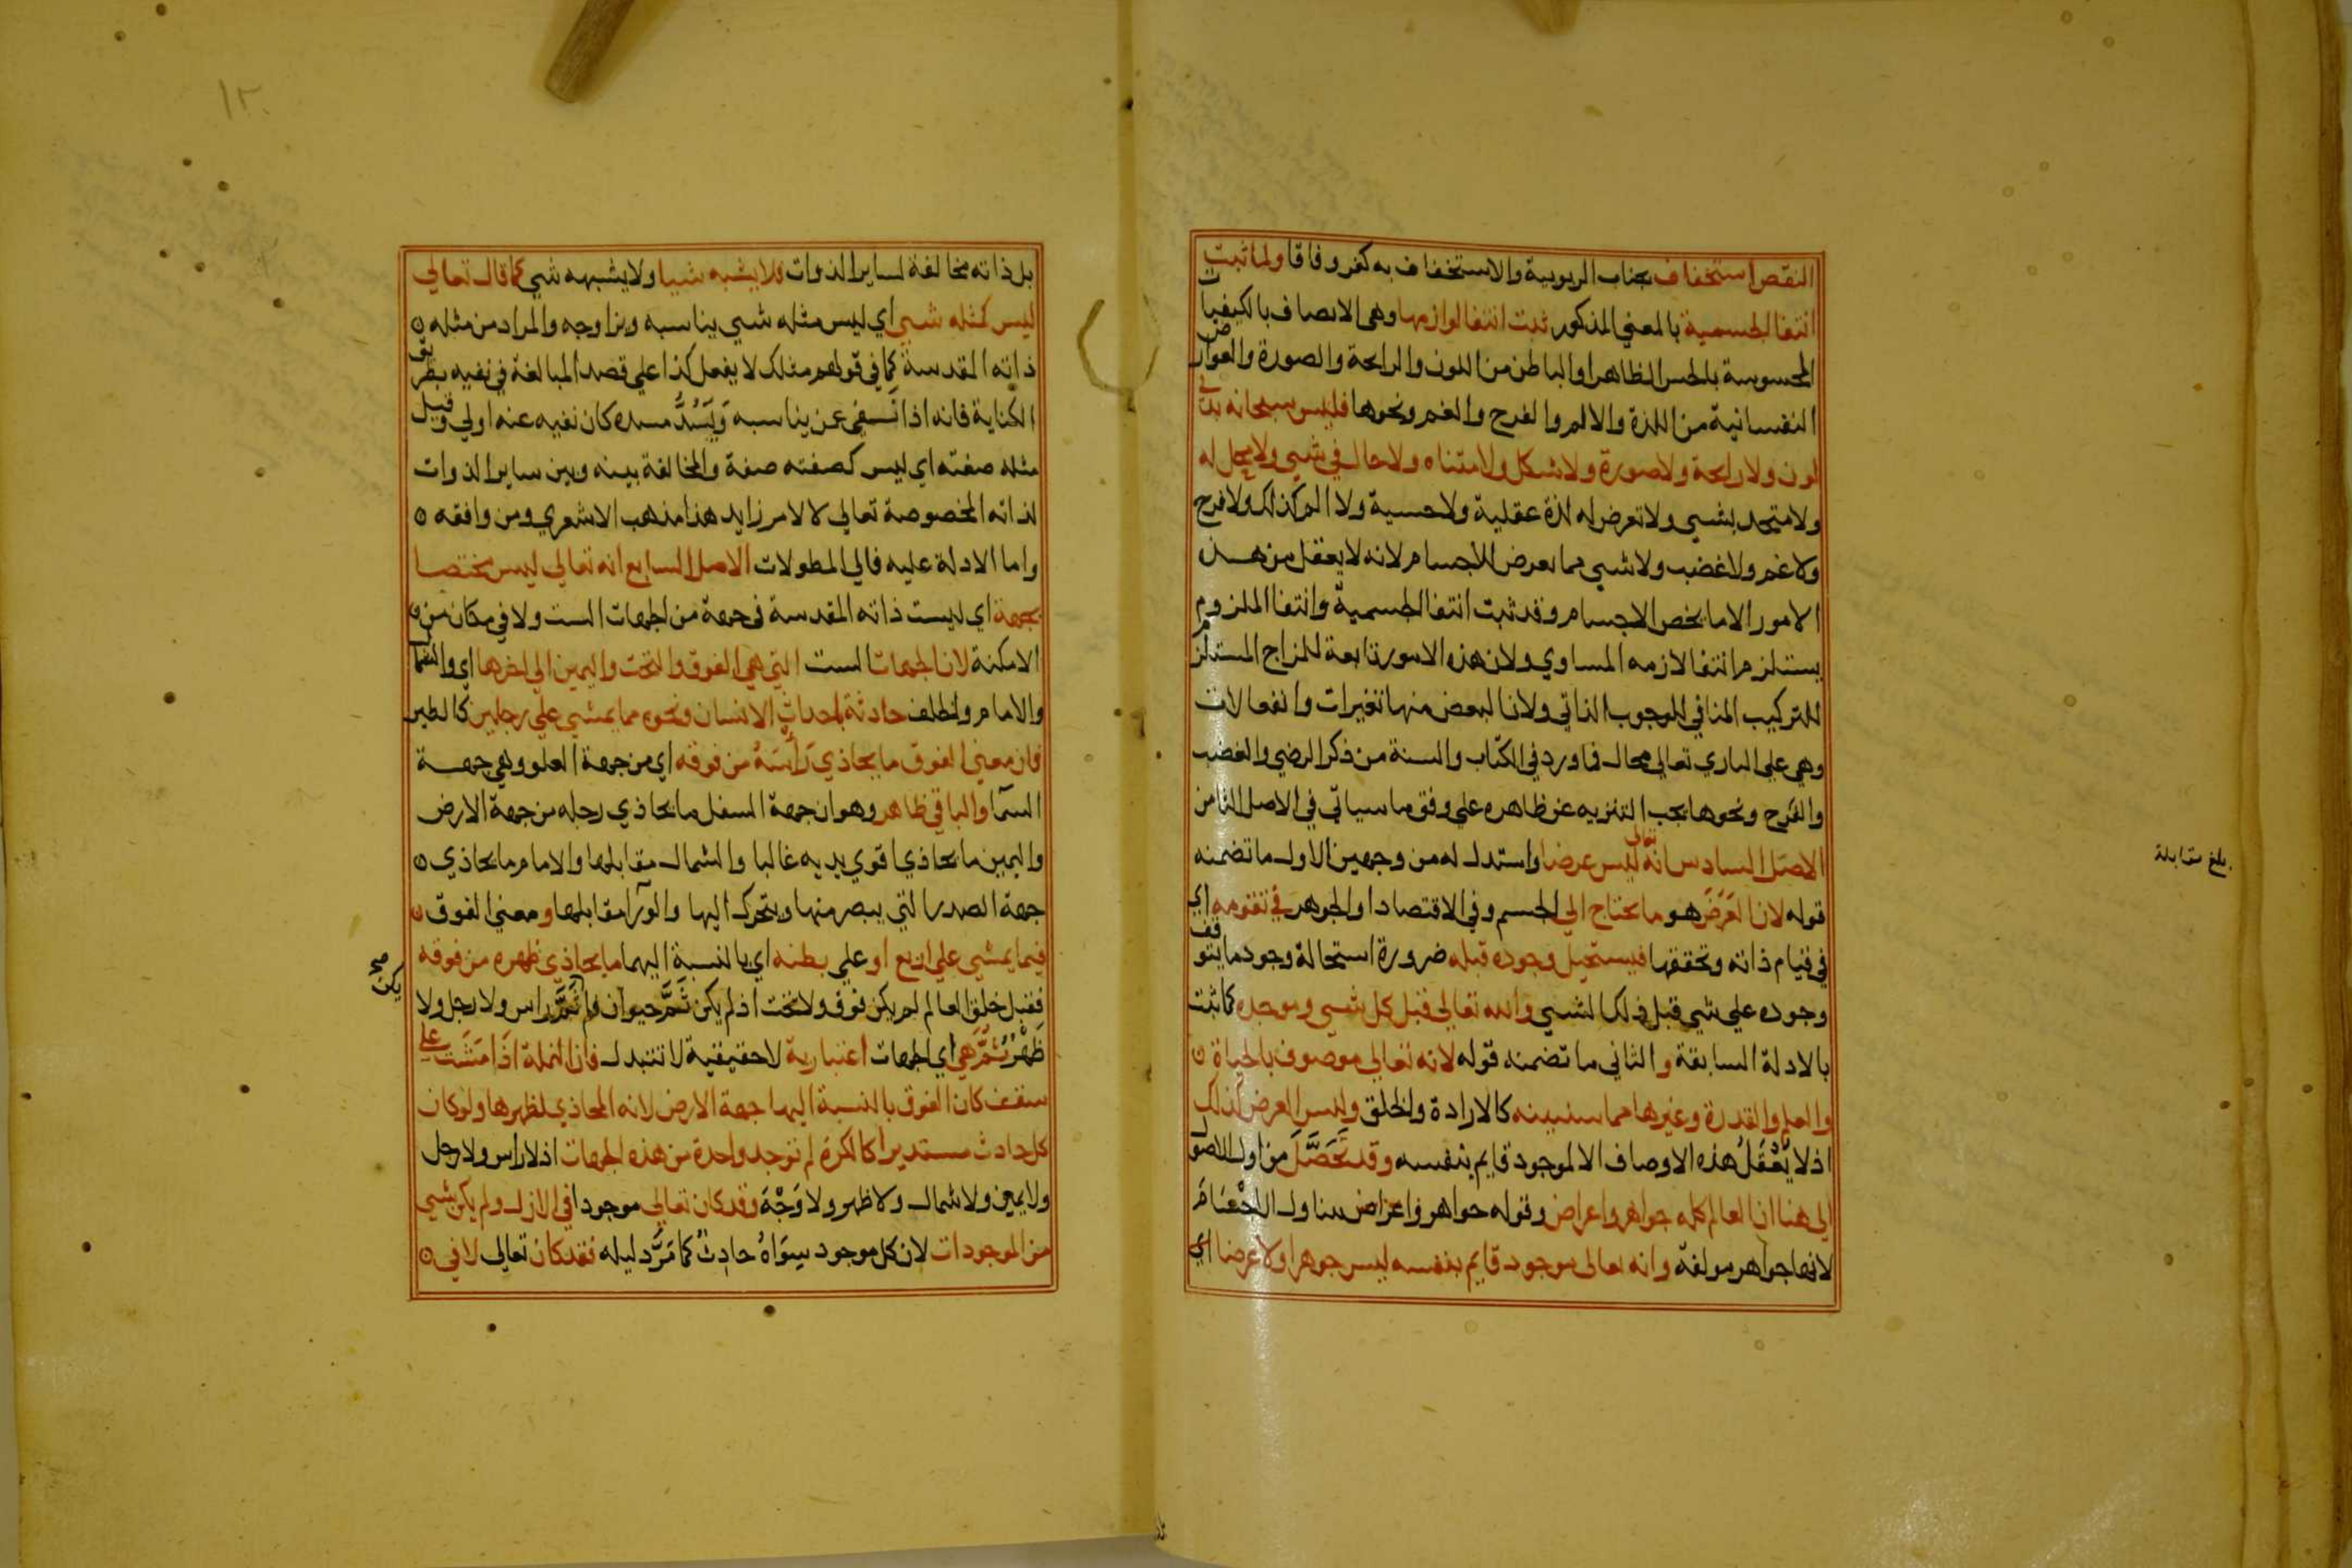 النقص استخفاف بجناب الربوبية والاستخفاف به كفر وفاقا ولما ثبت
انتفا الجسمية بالمعني المذكور ثبت انتفا لوازمها وهي الاتصاف بالكيفيات
المحسوسة بالحس الظاهر او الباطن من اللون والرايحة والصورة والعوارض
النفسانية من اللذة والالم والفرح والغم ونحوها فليس سبحانه بذي
لون ولا رايحة ولا صورة ولا شكل ولا متناه ولا حال في شي ولا يحل له
ولا متحد بشي ولا تعرض له لذة عقلية ولا حسية ولا الم كذلك ولا فرح
ولا غم ولا غضب ولا شي مما يعرض للاجسام لانه لا يعقل من هذه
الامور الا ما يخص الاجسام وقد ثبت انتفا الجسمية وانتفا الملزوم
يستلزم انتفا لازمه المساوي ولان هذه الامور تابعة للمزاج المستلزم
للتركيب المنافي للوجوب الذاتي ولان البعض منها تغيرات وانفعالات
وهي علي الباري تعالي محال فما ورد في الكتاب والسنة من ذكر الرضي والغضب
والفرح ونحوها يجب التنزيه عن ظاهره علي وفق ما سياتي في الاصل الثامن
الاصل السادس انه تعالي ليس عرضا واستدل له من وجهين الاول ما تضمنه
قوله لان العَرَضَ هو ما يحتاج الي الجسم وفي الاقتصاد او الجوهر في تقومه اي
في قيام ذاته وتحققها فيستحيل وجوده قبله ضرورة استحالة وجود ما يتوقف
وجوده علي شي قبل ذلك الشي والله تعالي قبل كل شي وموجده كما ثبت
بالادلة السابقة والثاني ما تضمنه قوله لانه تعالي موصوف بالحياة
والعلم والقدرة وغيرها مما سنبينه كالارادة والخلق وليس العرض كذلك
اذ لا يُعْقَلُ هذه الاوصاف الا لموجود قايم بنفسه وقد تَحَصَّلَ من اول الاصول
الي هنا ان العالم كله جواهر واعراض وقوله جواهر واعراض يتناول الاجسام
لانها جواهر مولفة وانه تعالي موجود قايم بنفسه ليس جوهرا ولا عرضا اي
بلغ مقابلة
١٢
بل ذاته مخالفة لساير الذوات فلا يشبه شيا ولا يشبهه شي كما قال تعالي
ليس كمثله شي اي ليس مثله شي يناسبه ويزاوجه والمراد من مثله
ذاته المقدسة كما في قولهم مثلك لا يفعل كذا علي قصد المبالغة في نفيه بطريق
الكناية فانه اذا نُفي عمن يناسبه وَيَسُدُّ مسده كان نفيه عنه اولي وقيل
مثله صفته اي ليس كصفته صفة والمخالفة بينه وبين ساير الذوات
لذاته المخصوصة تعالي لا لامر زايد هذا مذهب الاشعري ومن وافقه
واما الادلة عليه فالي المطولات الاصل السابع انه تعالي ليس مختصا
بجهة اي ليست ذاته المقدسة في جهة من الجهات الست ولا في مكان من
الامكنة لان الجهات الست التي هي الفوق والتحت واليمين الي اخرها اي والشمال
والامام والخلف حادثة باحداث الانسان ونحوه مما يمشي علي رجلين كالطير
فان معني الفوق ما يحاذي رَأسَهُ من فوقه اي من جهة العلو وهي جهة
السما والباقي ظاهر وهو ان جهة السفل ما يحاذي رجله من جهة الارض
واليمين ما يحاذي اقوي يديه غالبا والشمال مقابلها والامام ما يحاذي
جهة الصدر التي يبصر منها ويتحرك اليها والورآ مقابلها ومعني الفوق
فيما يمشي علي اربع او علي بطنه اي بالنسبة اليهما ما يحاذي ظهره من فوقه
فقبل خلق العالم لم يكن فوق ولا تحت اذ لم يكن ثَمَّ حيوان ولم ثَمَّ راس ولا رجل ولا
يكن صح
ظَهْرٌ ثُمَّ هي اي الجهات اعتبارية لا حقيقية لا تتبدل فان النملة اذَا مَشَت علي
سقف كان الفوق بالنسبة اليها جهة الارض لانه المحاذي لظهرها ولو كان
كل حادث مستديرا كالكرة لم توجد واحدة من هذه الجهات اذ لا راس ولا رجل
ولا يمين ولا شمال ولا ظهر ولا وَجْهَ وقد كان تعالي موجودا في الازل ولم يكن شي
من الموجودات لان كل موجود سِوَاهُ حادِثٌ كما مَرَّ دليله فقد كان تعالي لا في